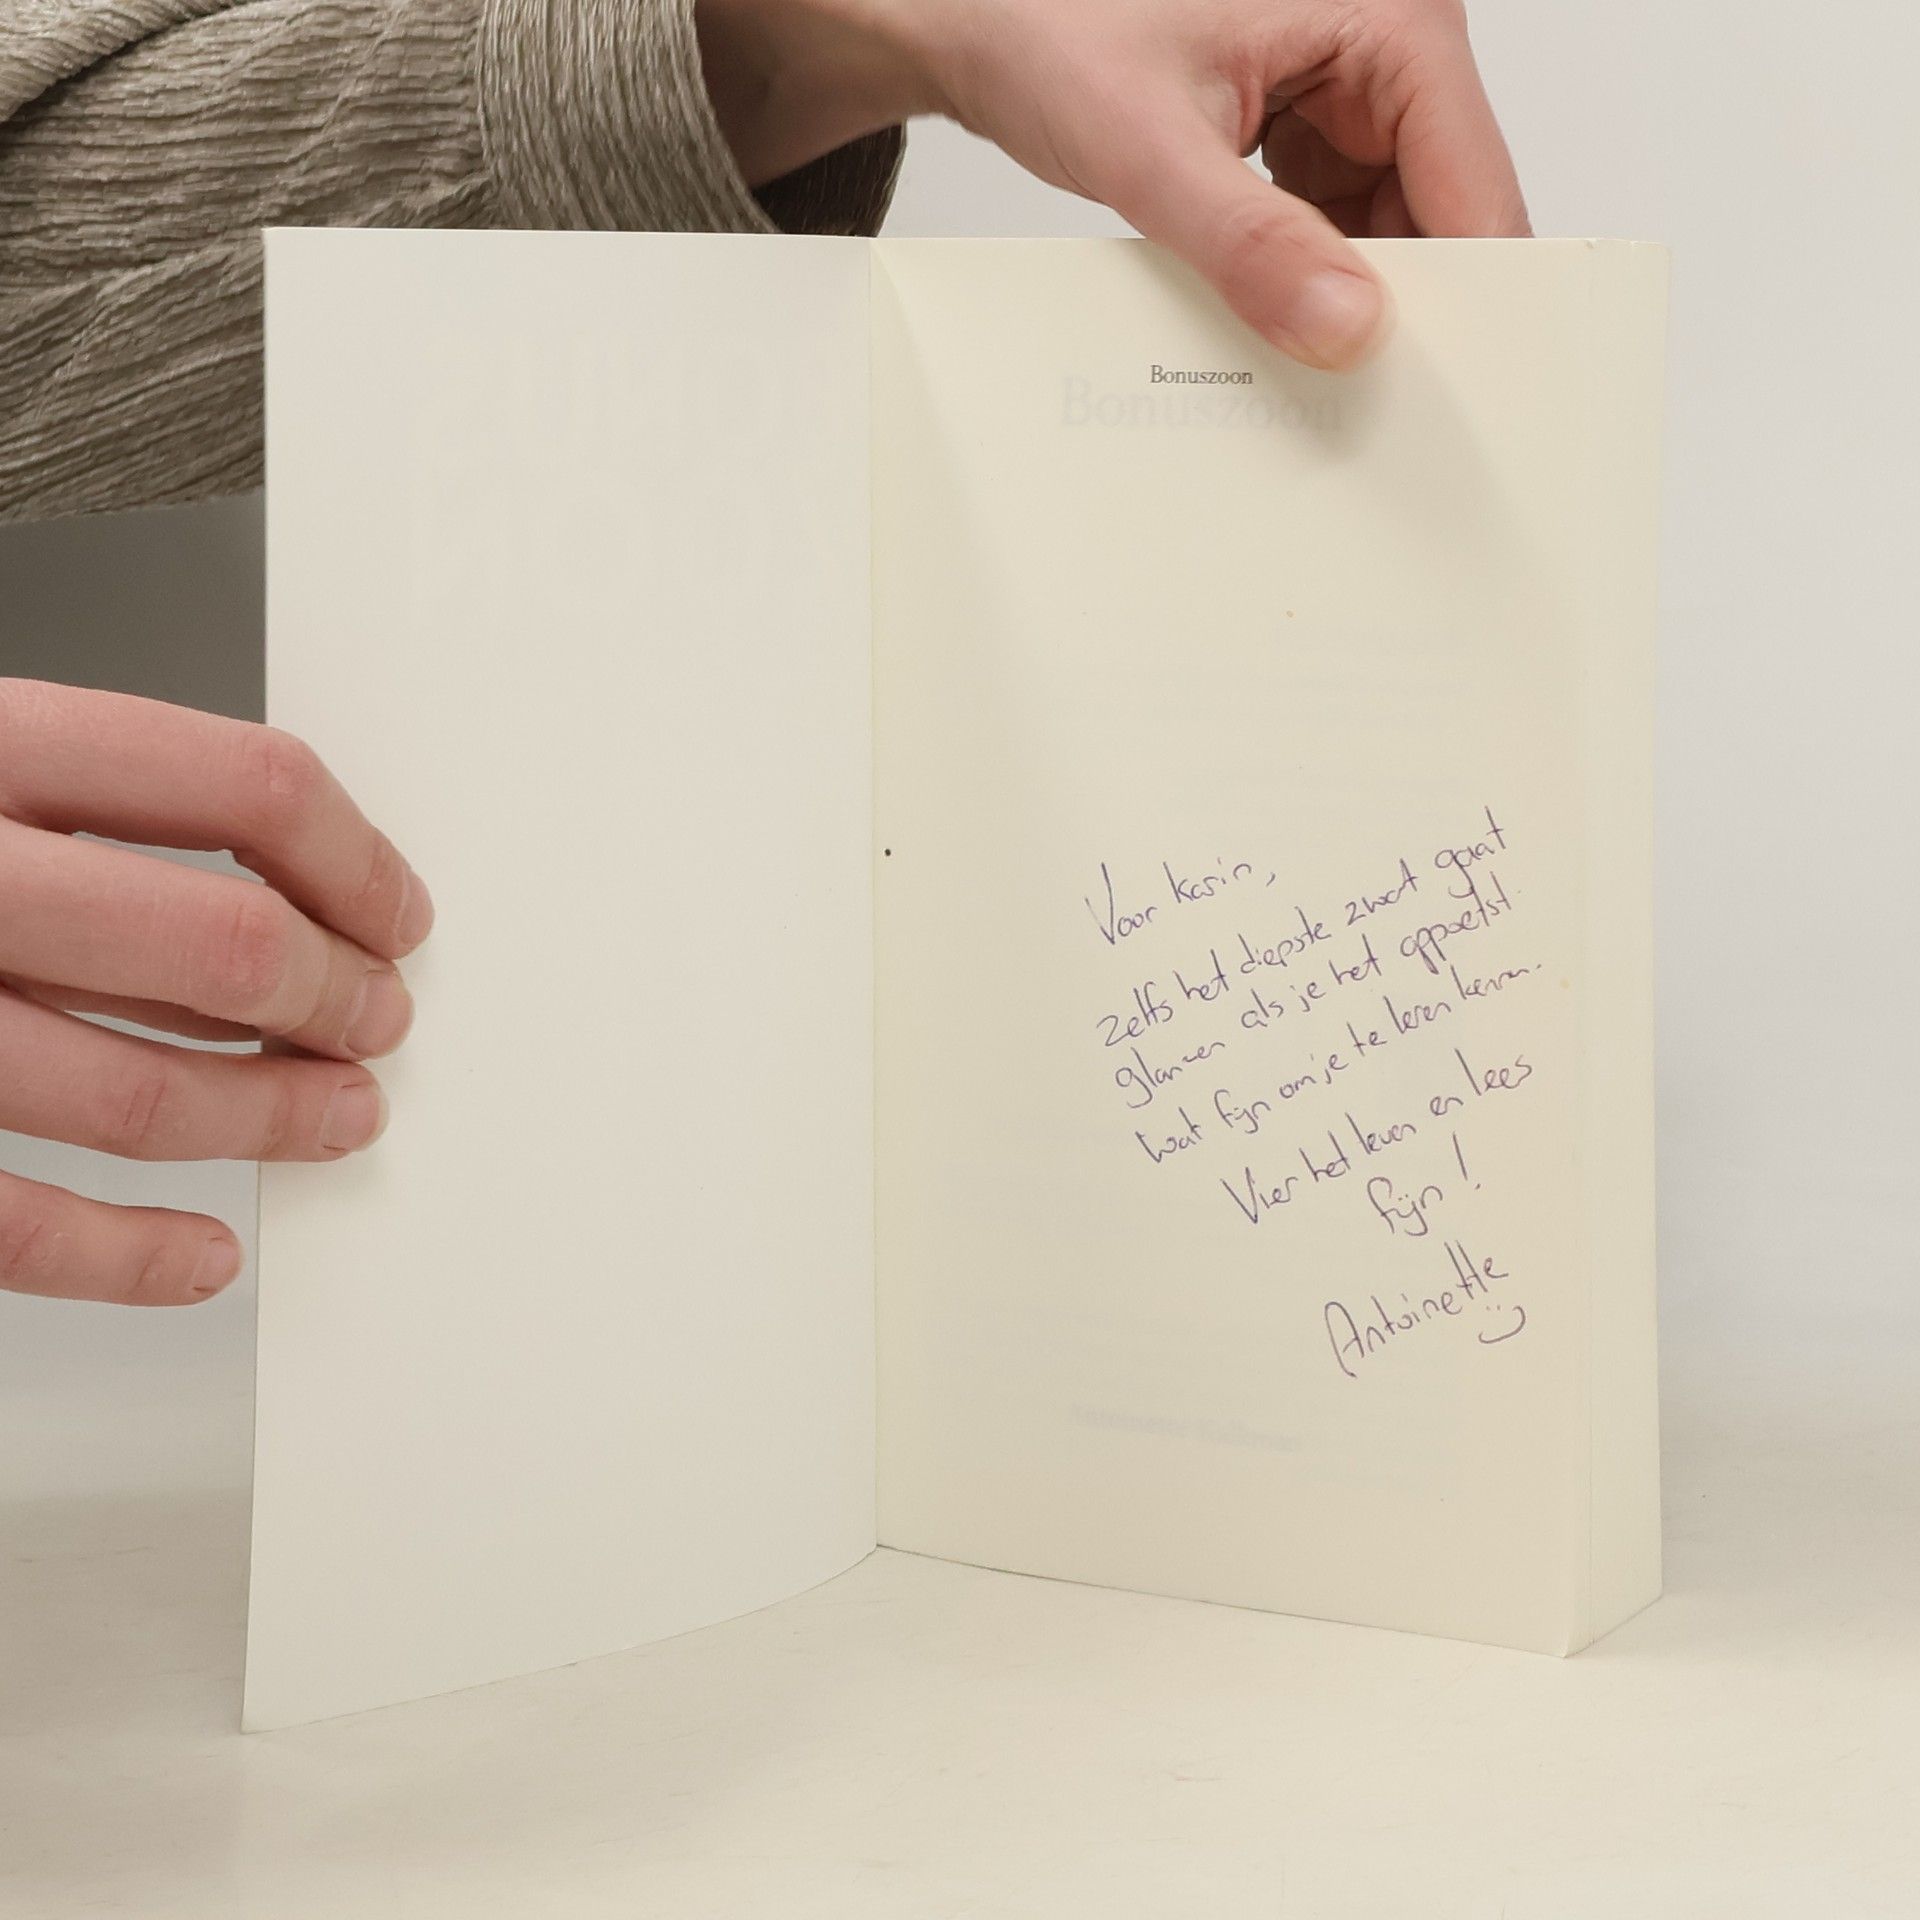 Bonuszoon
Bonuszoon
Voor Karin,
zelfs het diepste zwart gaat
glanzen als je het oppoetst.
Wat fijn om je te leren kennen.
Vier het leven en lees
fijn!
Antoinette
Antoinette